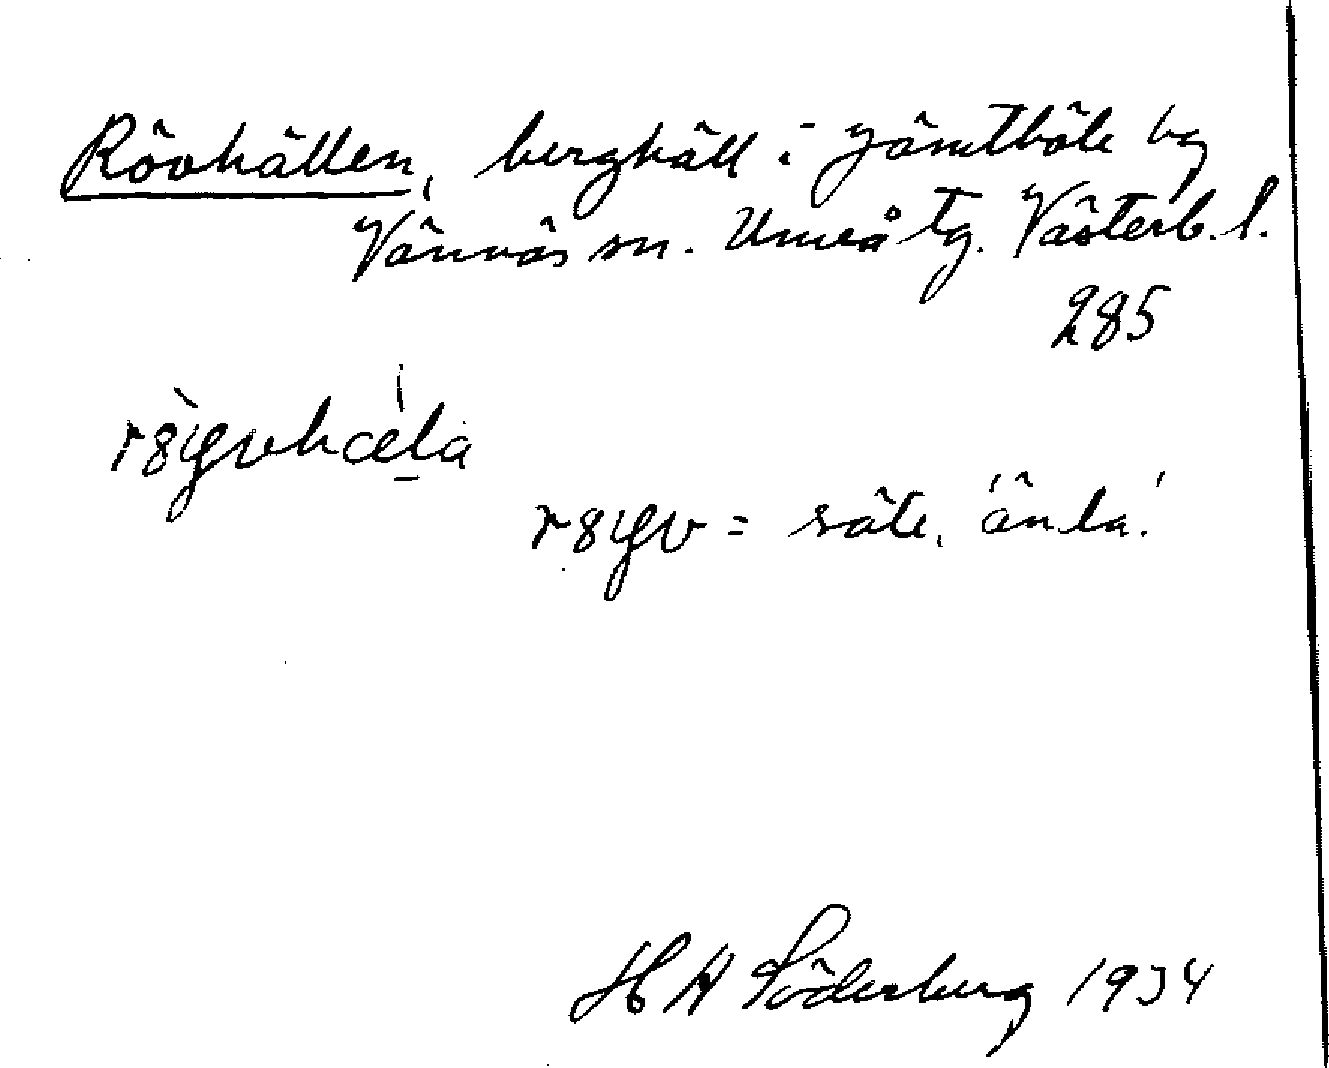 Rövhällen, berghäll i Jämtböle by
Vännäs sn. Umeå tg. Västerb. l.
285
rs̀yvhœ́la
rsyv = säte, 'ända'
H A Söderberg 1934